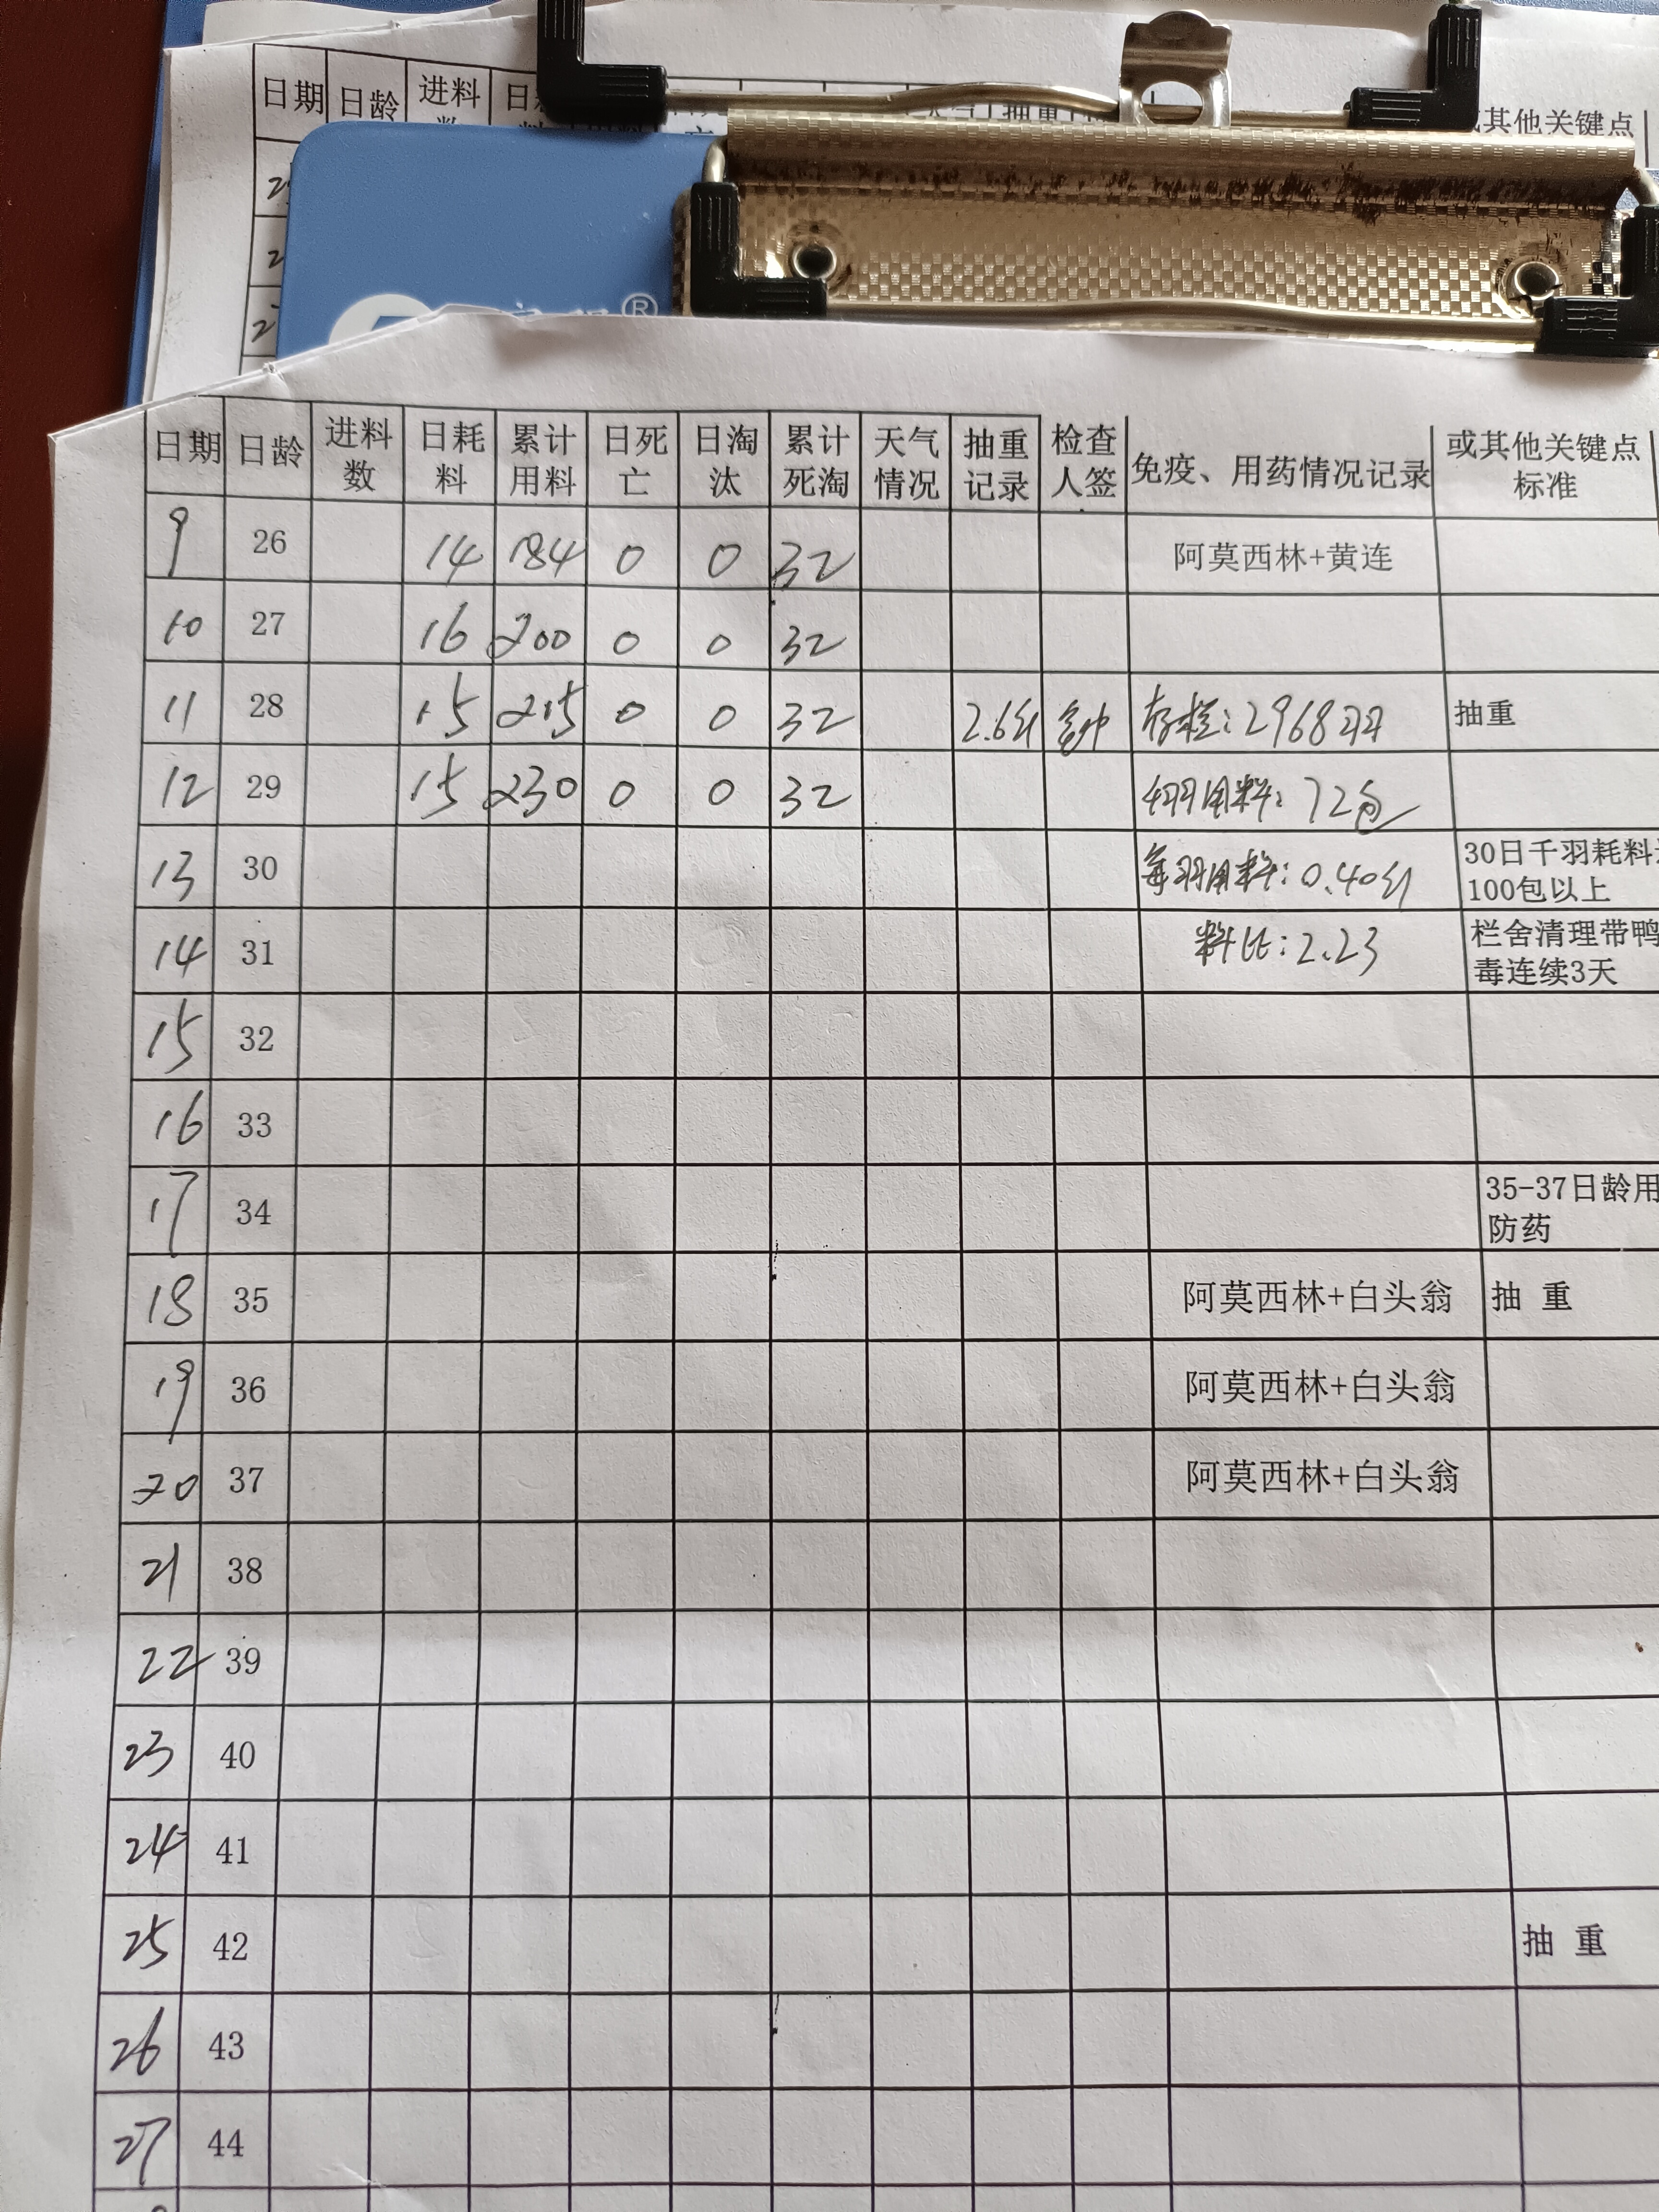 日期 日龄 进料
或其他关键点
®
日期 日龄 进料数 日耗料 累计用料 日死亡 日淘汰 累计死淘 天气情况 抽重记录 检查人签 免疫、用药情况记录 或其他关键点标准
9 26 14 184 0 0 32 阿莫西林+黄连
10 27 16 200 0 0 32
11 28 15 215 0 0 32 2.6斤 存栏:2968羽 抽重
12 29 15 230 0 0 32 用料:72包
13 30 每羽用料:0.40斤 30日千羽耗料
100包以上
14 31 料比:2.23 栏舍清理带鸭
毒连续3天
15 32
16 33
17 34 35-37日龄用
防药
18 35 阿莫西林+白头翁 抽 重
19 36 阿莫西林+白头翁
20 37 阿莫西林+白头翁
21 38
22 39
23 40
24 41
25 42 抽 重
26 43
27 44